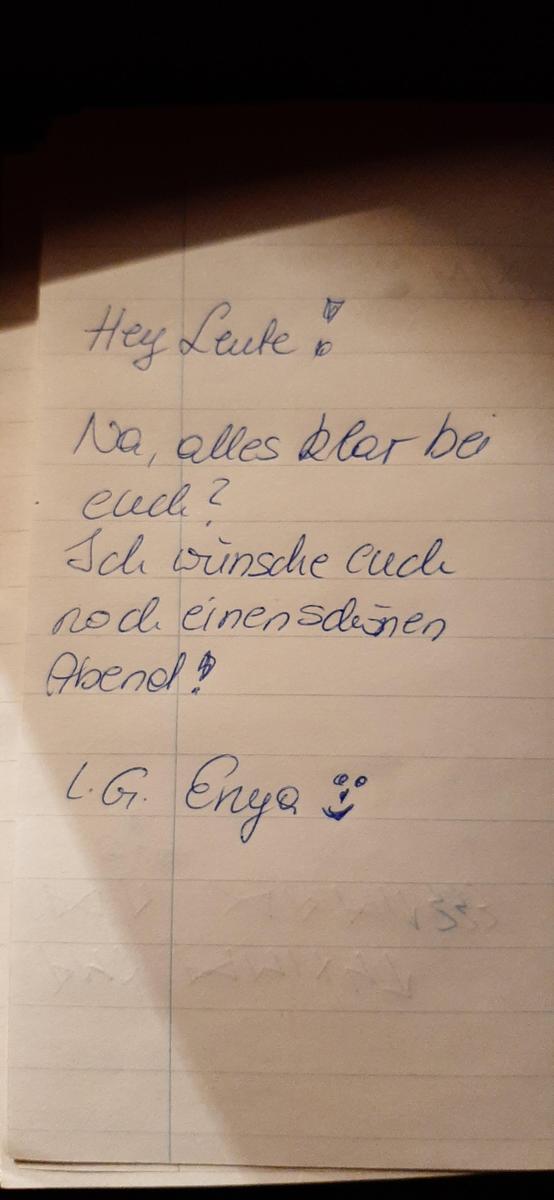 Hey Leute!
Na, alles klar bei
euch?
Ich wünsche euch
noch einen schönen
Abend!
L.G. Enya